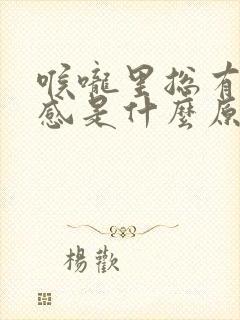 喉嚨里總有
感是什麼原
楊歡